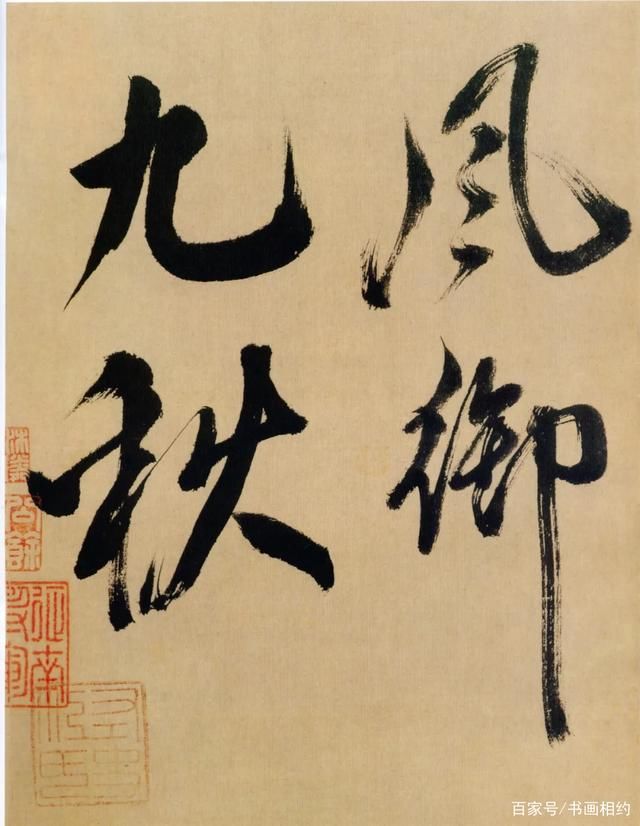 風御
九秋
百家号/书画相约